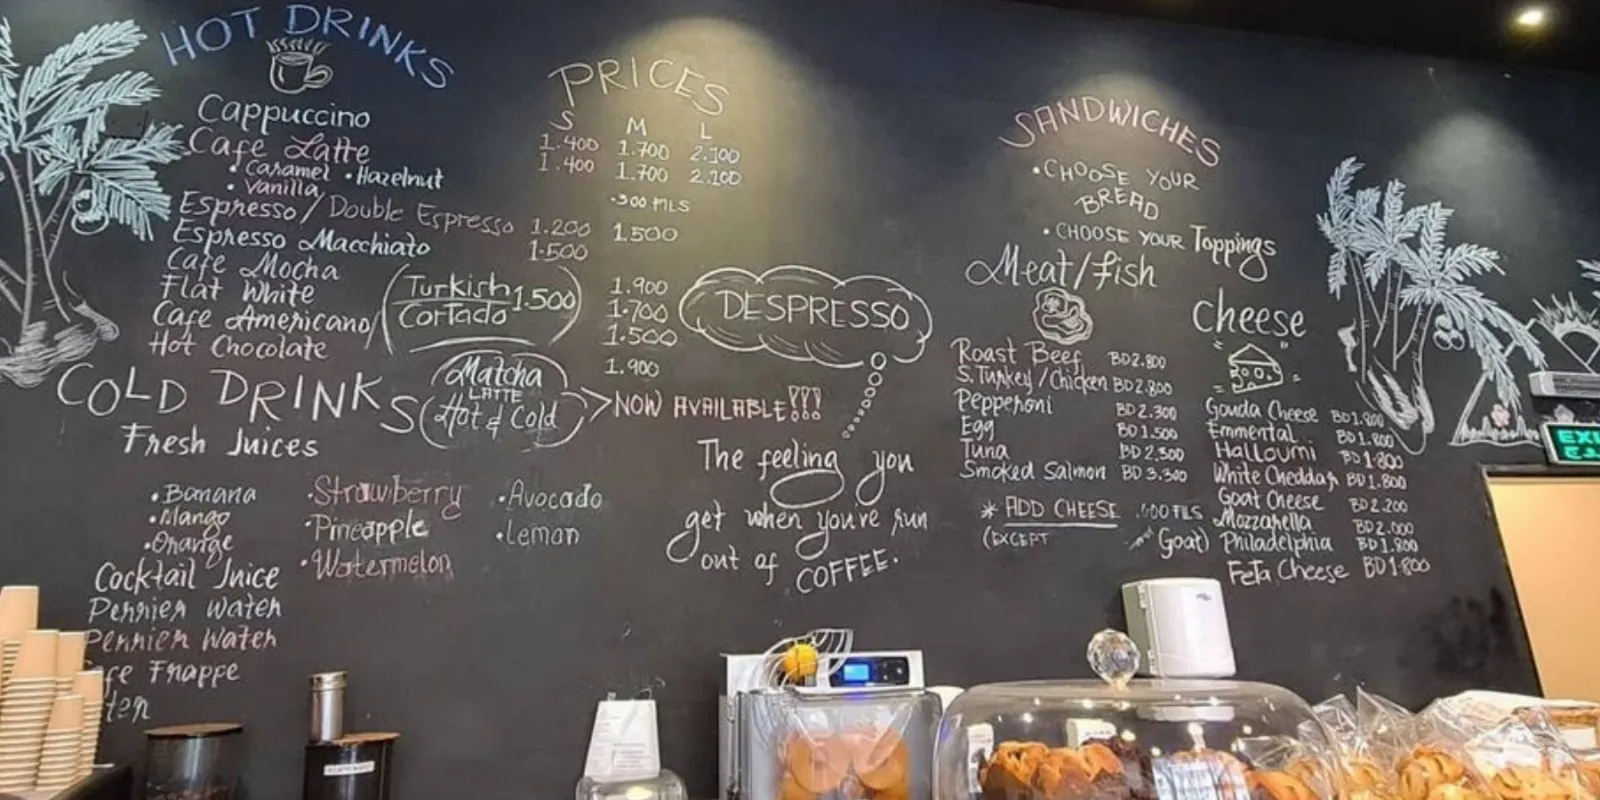 HOT DRINKS
Cappuccino
Cafe Latte
• Caramel • Hazelnut
• Vanilla
Espresso / Double Espresso
Espresso Macchiato
Cafe Mocha
Flat White
Cafe Americano/
Hot Chocolate
(Turkish 1.500)
Cortado
Matcha
LATTE
Hot & Cold
NOW AVAILABLE!!!
PRICES
S M L
1.400 1.700 2.100
1.400 1.700 2.100
•300 FILS
1.200 1.500
1.500
1.900
1.700
1.500
1.900
COLD DRINKS
Fresh Juices
• Banana
• Mango
• Orange
• Strawberry
• Pineapple
• Watermelon
• Avocado
• Lemon
Cocktail Juice
Perrier Water
Perrier Water
Frappe
DESPRESSO
The feeling you
get when you're run
out of COFFEE.
SANDWICHES
• CHOOSE YOUR
BREAD
• CHOOSE YOUR Toppings
Meat/fish
Roast Beef BD 2.800
S.Turkey/Chicken BD 2.800
Pepperoni BD 2.300
Egg BD 1.500
Tuna BD 2.300
Smoked Salmon BD 3.300
* ADD CHEESE .600 FILS
(EXCEPT Goat)
cheese
Gouda Cheese BD 1.800
Emmental BD 1.800
Halloumi BD 1.800
White Cheddar BD 1.800
Goat Cheese BD 2.200
Mozzarella BD 2.000
Philadelphia BD 1.800
Feta Cheese BD 1.800